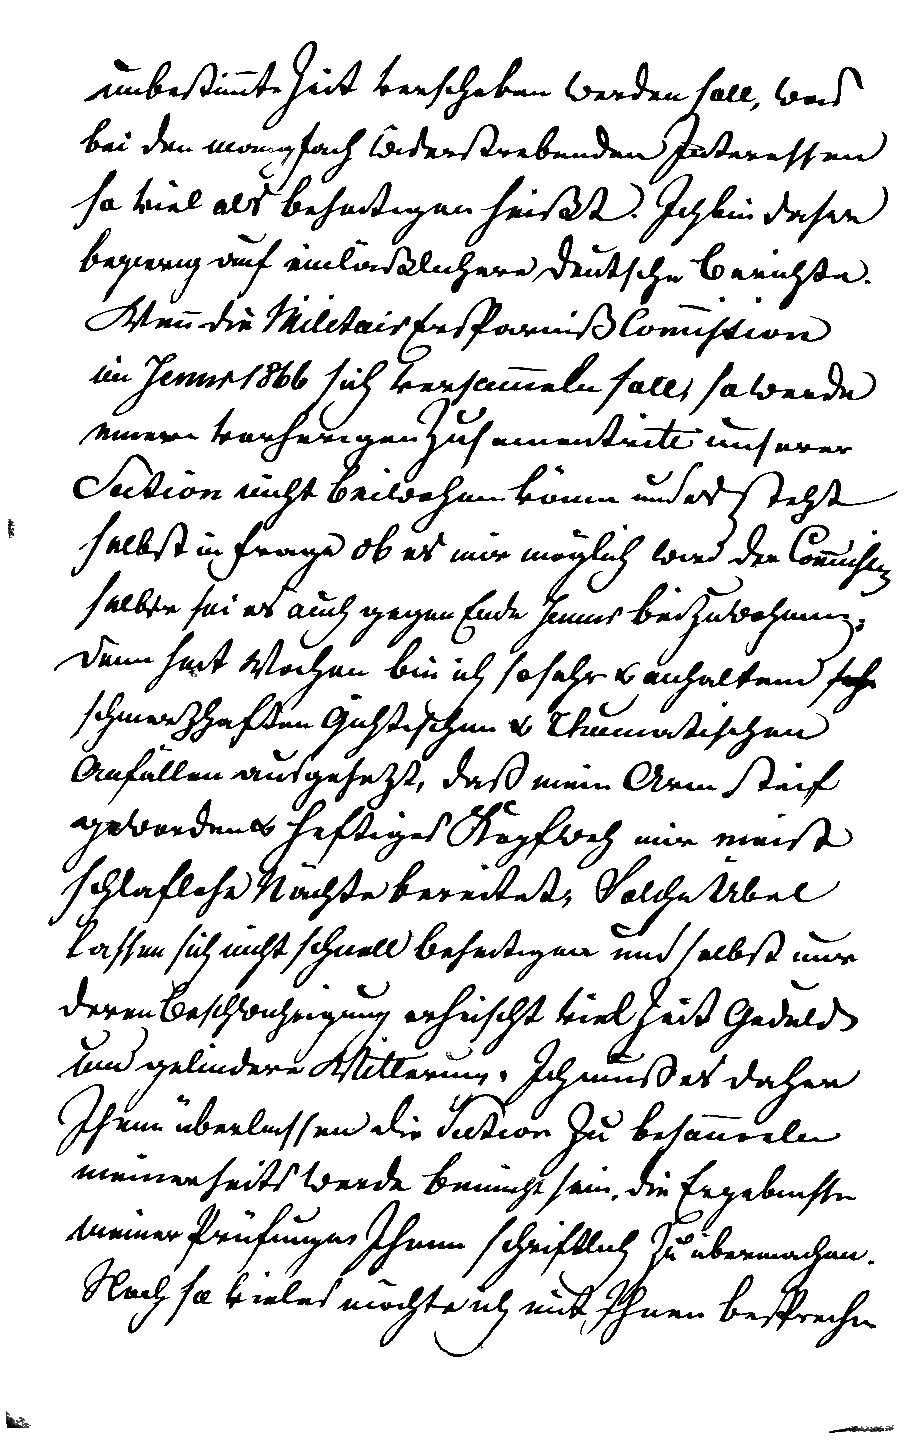 unbestim̅te Zeit verschoben werden soll, was
bei den mannigfach widerstrebenden Interessen
so viel als beseitigen heißt. Ich bin daher
begierig auf einläßlichere deutsche Berichte.
Wen̅ die Militair Ersparniß Com̅ission
im Jenner 1866 sich versam̅eln soll, so werde
einem vorherigen Zusamentritt unserer
Section nicht beiwohnen können und es steht
selbst in Frage ob es mir möglich wird der Com̅ission
selber sei es auch gegen Ende Jenner beizuwohnen;
denn seit Wochen bin ich so sehr & anhaltend
schmerzhaften Gichtischen & Rheumatischen
Anfällen ausgesetzt, daß mein Arm steif
geworden & heftiges Kopfweh mir meist
schlaflose Nächte bereitet. Solche Übel
lassen sich nicht schnell beseitigen und selbst nur
deren Beschwichtigung erheischt viel Zeit Geduld
und gelindere Witterung. Ich muß es daher
Ihnen überlassen die Section zu besam̅eln
meinerseits werde bemüht sein, die Ergebnisse
meiner Prüfungen Ihnen schriftlich zu übermachen.
Noch so vieles möchte ich mit Ihnen besprechen